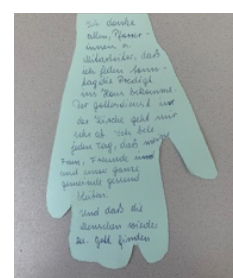 Ich danke
allen, Pfarrer-
innen u.
Mitarbeiter, daß
ich jeden Sonn-
tag die Predigt
im Haus bekomme.
Der Gottesdienst
der Kirche geht mir
sehr ab. Ich bete
jeden Tag, daß
Fam, Freunde
und unsre ganze
gemeinde gesund
bleiben.
Und daß die
Menschen wieder
zu Gott finden